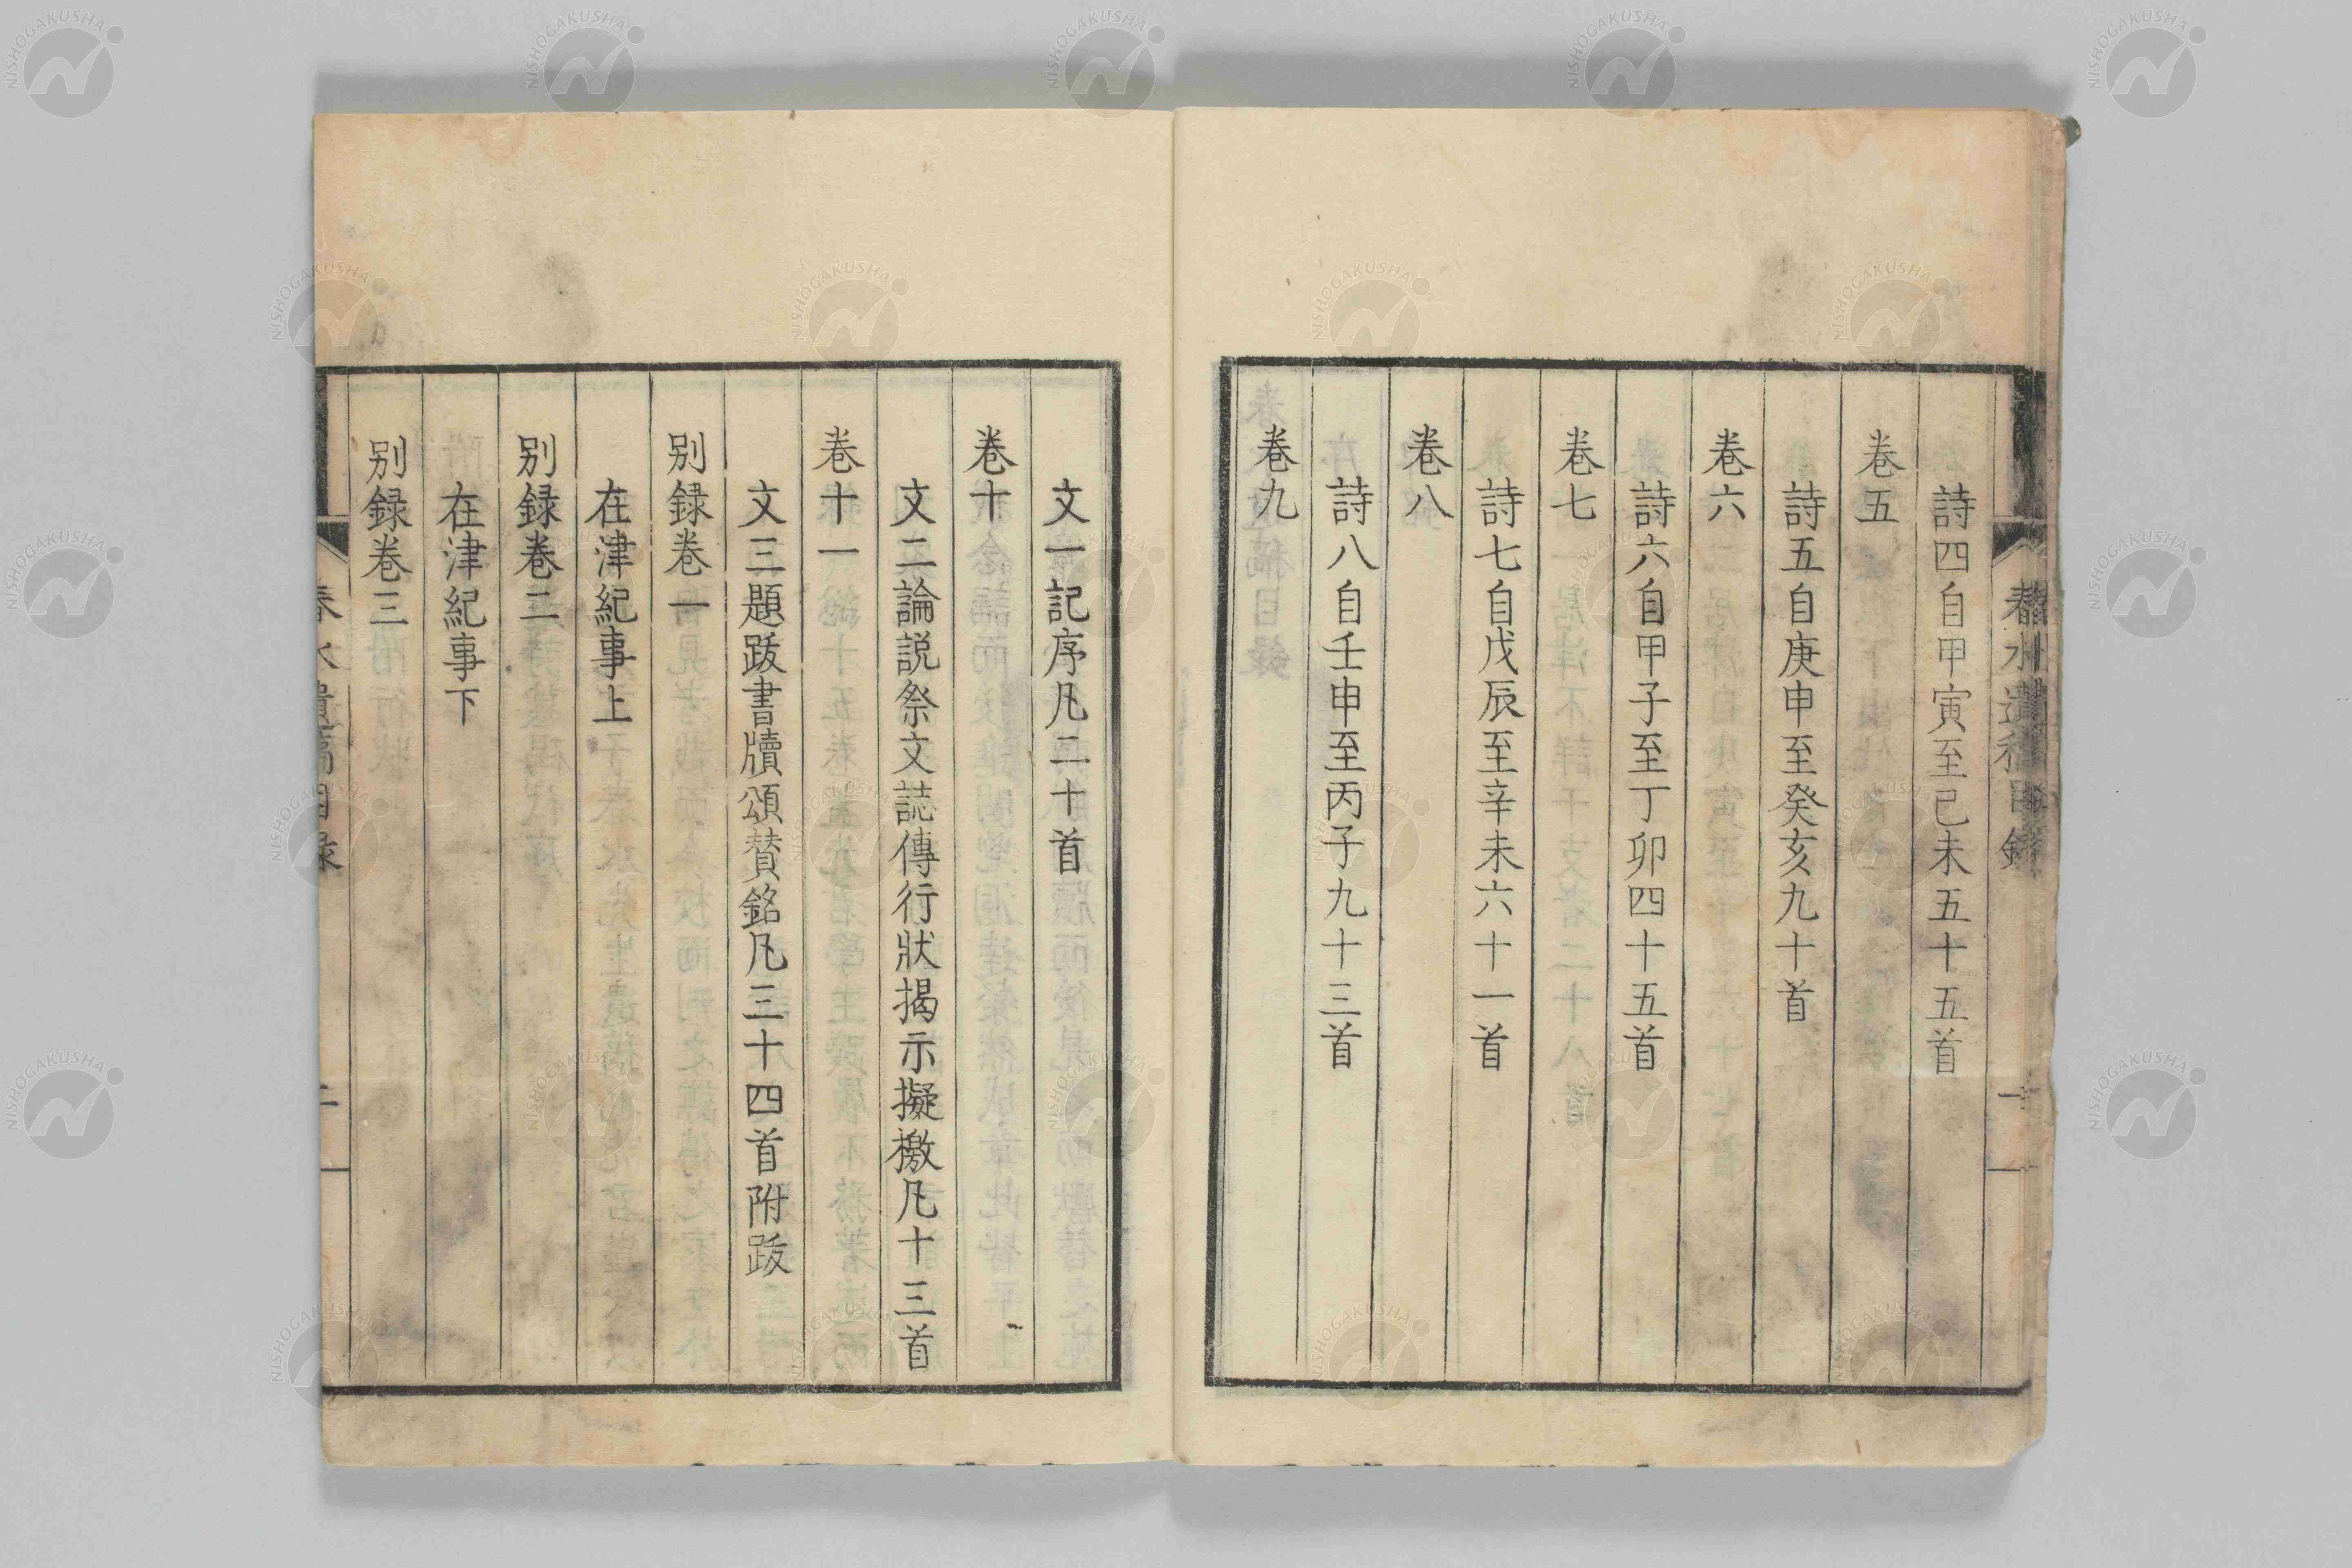 詩四自甲寅至己未五十五首
卷五
詩五自庚申至癸亥九十首
卷六
詩六自甲子至丁卯四十五首
卷七
詩七自戊辰至辛未六十一首
卷八
詩八自壬申至丙子九十三首
卷九
文一記序凡二十首
卷十
文二論説祭文誌傳行狀揭示擬檄凡十三首
卷十一
文三題跋書牘頌賛銘凡三十四首附跋
别録卷一
在津紀事上
别録卷二
在津紀事下
别録卷三
春水遺稿目録
二